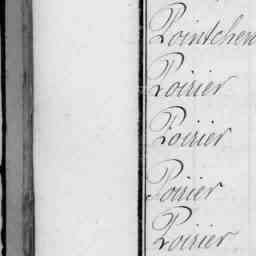 Pointchen
Poirier
Poirier
Poirier
Poirier